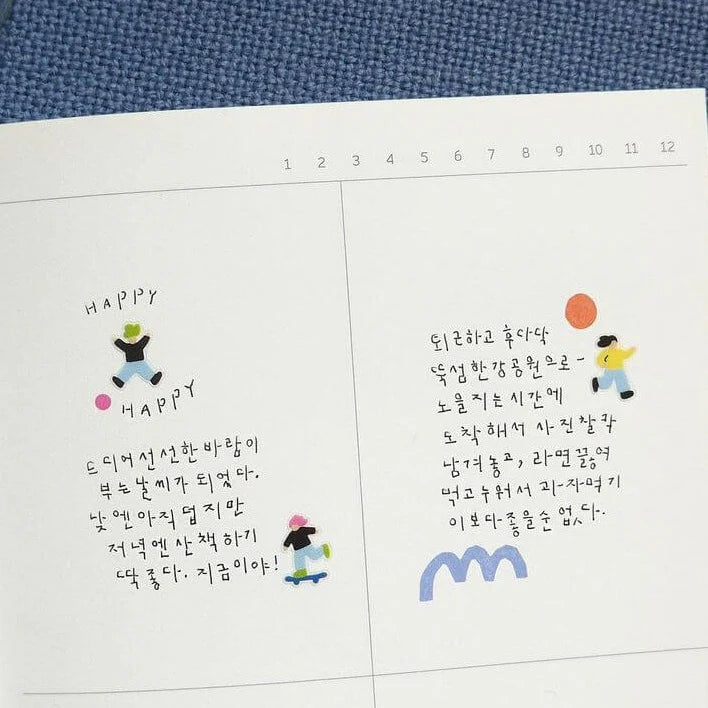 1 2 3 4 5 6 7 8 9 10 11 12
HAPPY
HAPPY
드디어 선선한 바람이
부는 날씨가 되었다.
낮엔 아직 덥지만
저녁엔 산책하기
딱 좋다. 지금이야!
퇴근하고 후다닥
뚝섬한강공원으로-
노을 지는 시간에
도착해서 사진 찰칵
남겨놓고, 라면 끓여
먹고 누워서 과자먹기
이보다 좋을 순 없다.